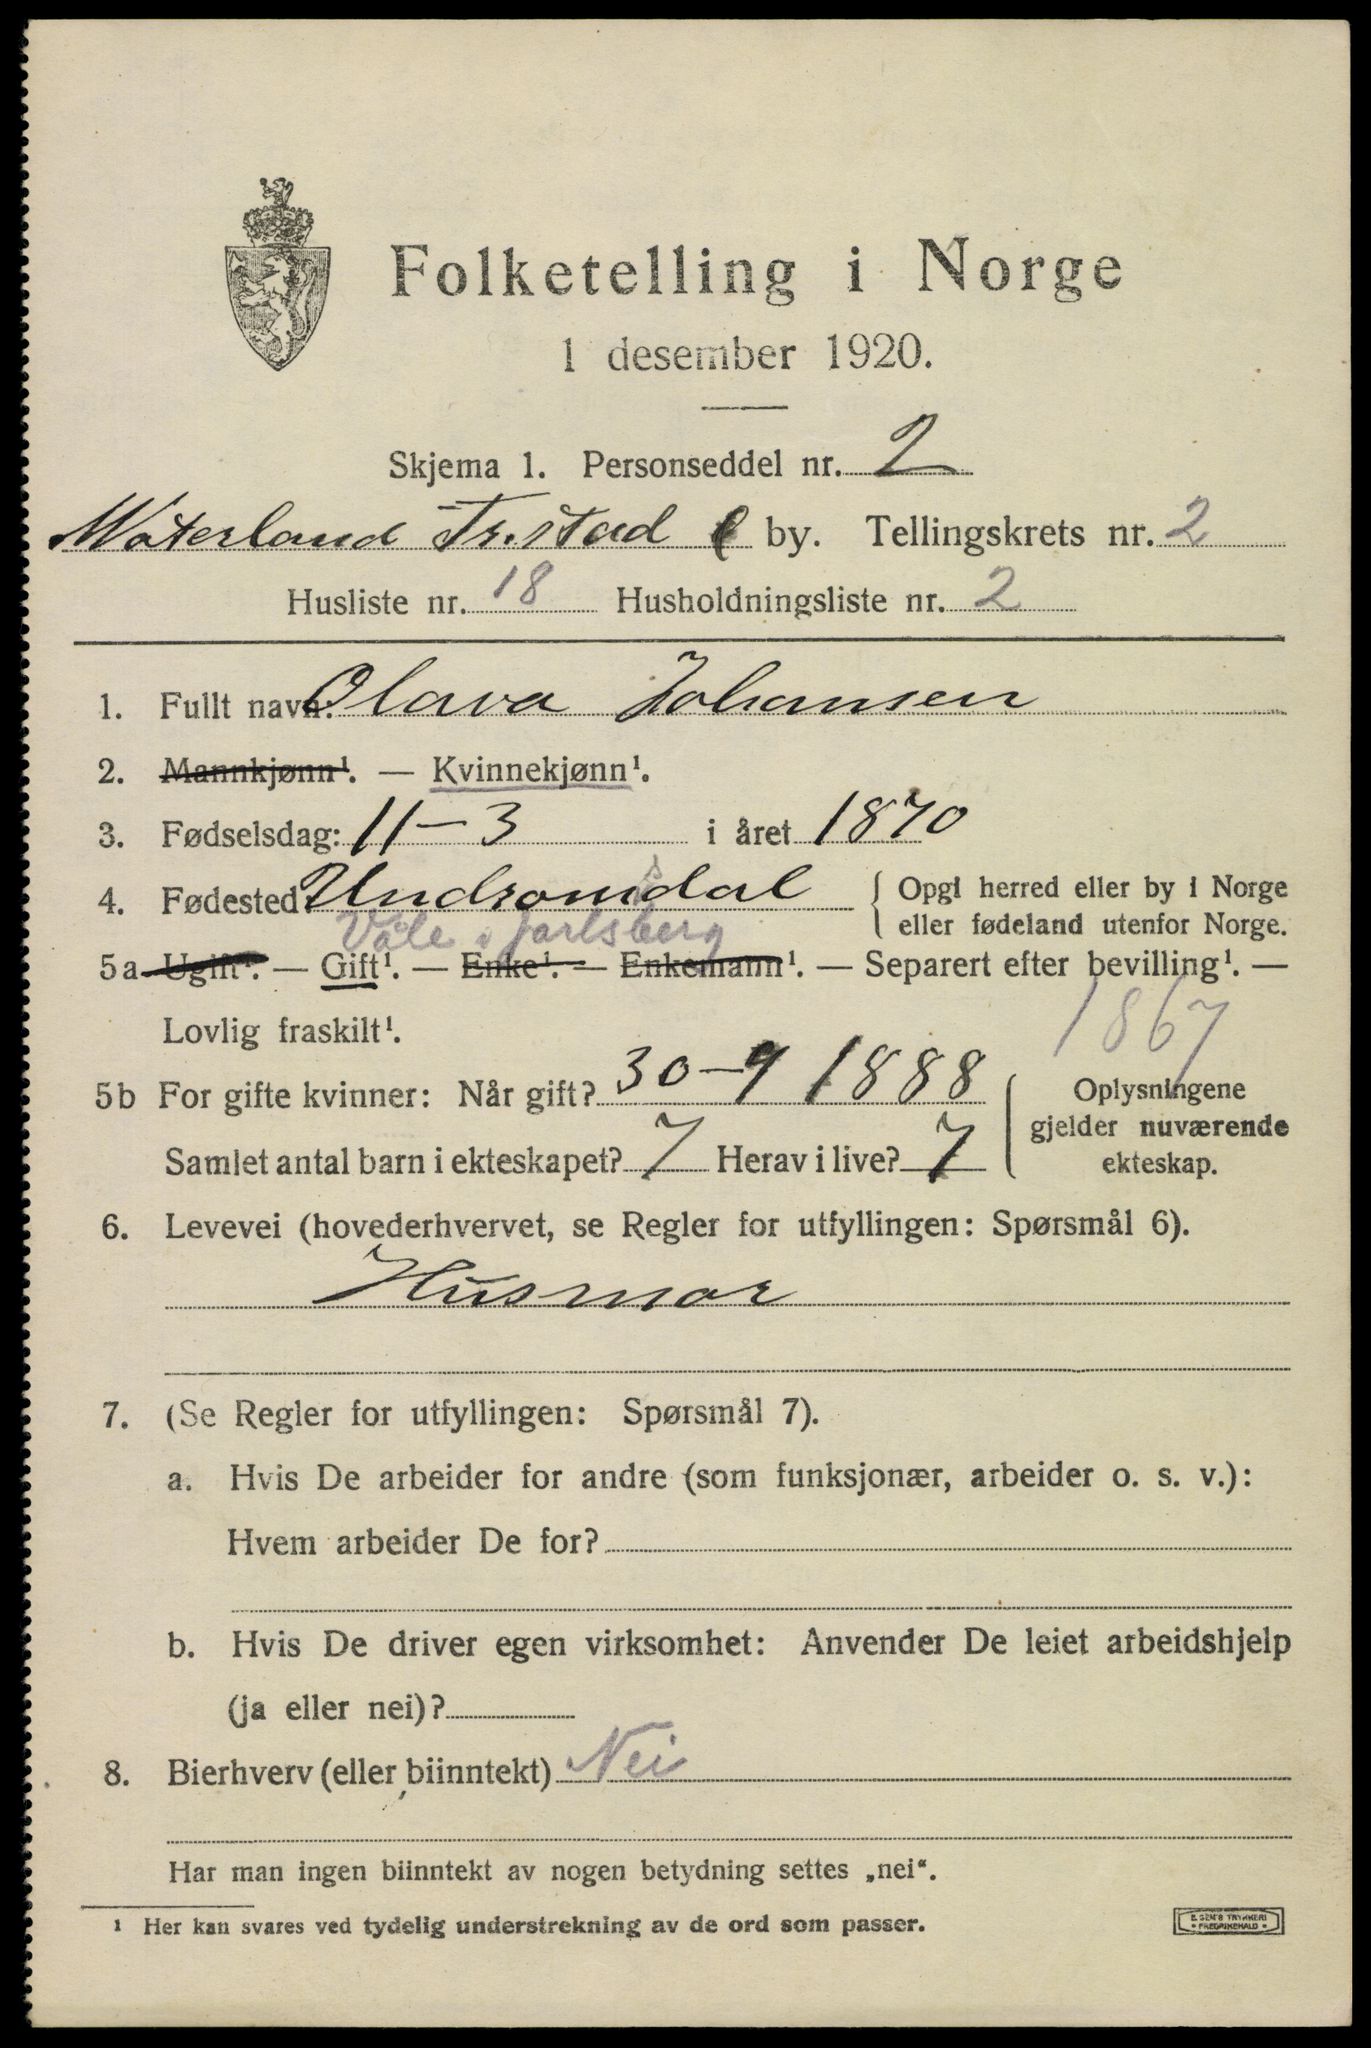 Folketelling i Norge
1 desember 1920.
Skjema 1. Personseddel nr. 2
Waterland Fr.stad by. Tellingskrets nr. 2
Husliste nr. 18 Husholdningsliste nr. 2
1. Fullt navn: Olava Johansen
2. Mannkjønn¹. — Kvinnekjønn¹.
3. Fødselsdag: 11-3 i året 1870
4. Fødested: Undromsdal { Opgi herred eller by i Norge
eller fødeland utenfor Norge.
Våle i Jarlsberg
5a Ugift¹. — Gift¹. — Enke¹. — Enkemann¹. — Separert efter bevilling¹. —
Lovlig fraskilt¹.
1867
5b For gifte kvinner: Når gift? 30-9 1888
Samlet antal barn i ekteskapet? 7 Herav i live? 7
Oplysningene
gjelder nuværende
ekteskap.
6. Levevei (hovederhvervet, se Regler for utfyllingen: Spørsmål 6).
Husmor
7. (Se Regler for utfyllingen: Spørsmål 7).
a. Hvis De arbeider for andre (som funksjonær, arbeider o. s. v.):
Hvem arbeider De for?
b. Hvis De driver egen virksomhet: Anvender De leiet arbeidshjelp
(ja eller nei)?
8. Bierhverv (eller biinntekt) Nei
Har man ingen biinntekt av nogen betydning settes „nei“.
¹ Her kan svares ved tydelig understrekning av de ord som passer.
TRYKKERI
FREDRIKSHALD